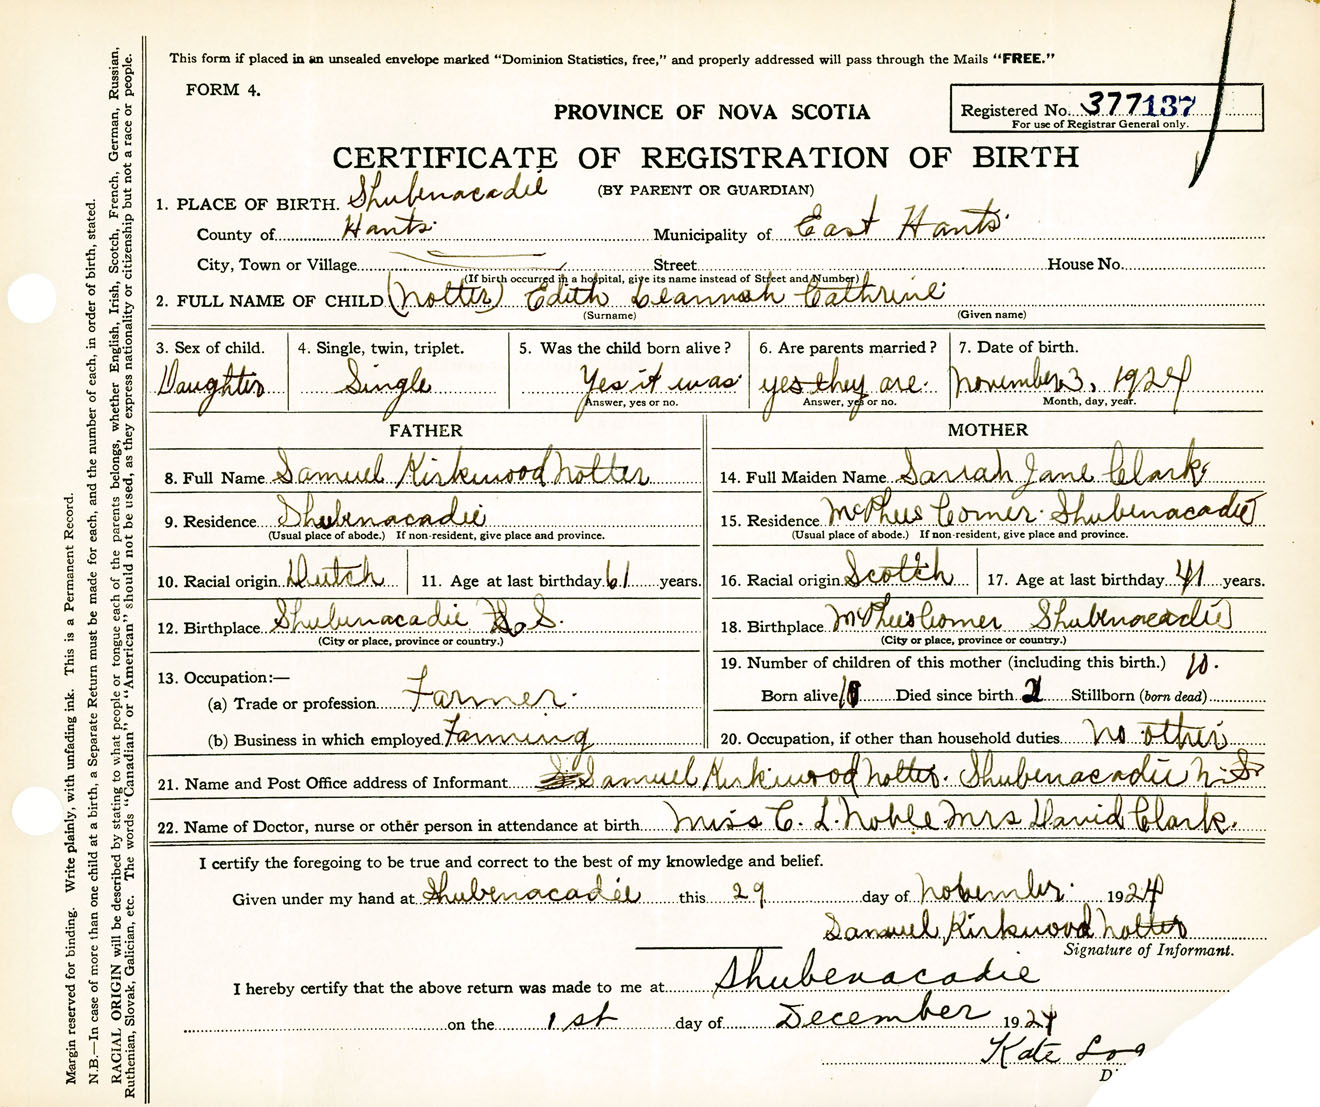 This form if placed in an unsealed envelope marked "Dominion Statistics, free," and properly addressed will pass through the Mails "FREE."
FORM 4.
PROVINCE OF NOVA SCOTIA
Registered No. 377137
For use of Registrar General only.
CERTIFICATE OF REGISTRATION OF BIRTH
(BY PARENT OR GUARDIAN)
1. PLACE OF BIRTH. Shubenacadie
County of Hants Municipality of East Hants
City, Town or Village Street House No.
(If birth occurred in a hospital, give its name instead of Street and Number)
2. FULL NAME OF CHILD (Notter) Edith Leannah Cathrine
(Surname) (Given name)
3. Sex of child. 4. Single, twin, triplet. 5. Was the child born alive? 6. Are parents married? 7. Date of birth.
Daughter Single Yes it was yes they are. November 3, 1924
Answer, yes or no. Answer, yes or no. Month, day, year.
FATHER MOTHER
8. Full Name Samuel Kirkwood Notter 14. Full Maiden Name Sarrah Jane Clark
9. Residence Shubenacadie 15. Residence McPhees Corner Shubenacadie
(Usual place of abode.) If non-resident, give place and province. (Usual place of abode.) If non-resident, give place and province.
10. Racial origin Dutch 11. Age at last birthday 61 years. 16. Racial origin Scotch 17. Age at last birthday 41 years.
12. Birthplace Shubenacadie N. S. 18. Birthplace McPhees Corner Shubenacadie
(City or place, province or country.) (City or place, province or country.)
13. Occupation:— 19. Number of children of this mother (including this birth.) 10.
(a) Trade or profession Farmer. Born alive 10 Died since birth 2 Stillborn (born dead)
(b) Business in which employed Farming 20. Occupation, if other than household duties no other
21. Name and Post Office address of Informant Samuel Kirkwood Notter. Shubenacadie N. S.
22. Name of Doctor, nurse or other person in attendance at birth Miss C. L. Noble Mrs David Clark.
I certify the foregoing to be true and correct to the best of my knowledge and belief.
Given under my hand at Shubenacadie this 29 day of November 1924
Samuel Kirkwood Notter
Signature of Informant.
I hereby certify that the above return was made to me at Shubenacadie
on the 1st day of December 1924
Kate
D
Margin reserved for binding. Write plainly, with unfading ink. This is a Permanent Record.
N.B.—In case of more than one child at a birth, a Separate Return must be made for each, and the number of each, in order of birth, stated.
RACIAL ORIGIN will be described by stating to what people or tongue each of the parents belongs, whether English, Irish, Scotch, French, German, Russian,
Ruthenian, Slovak, Galician, etc. The words "Canadian" or "American" should not be used, as they express nationality or citizenship but not a race or people.